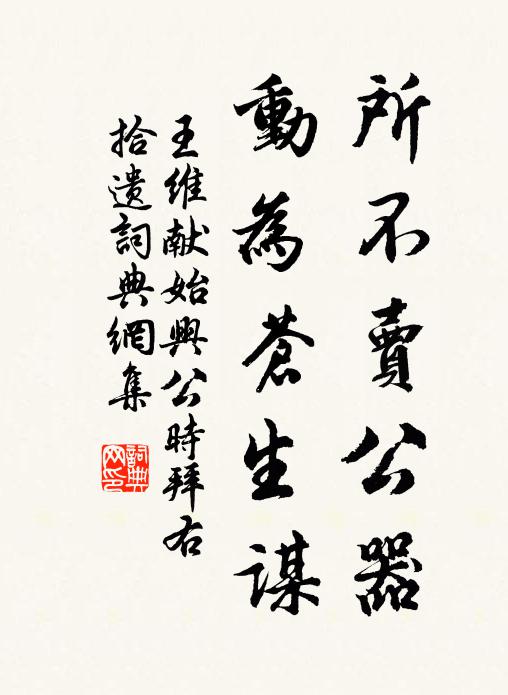 所不賣公器
動為蒼生謀
王維献始興公時拜右
拾遺詞典網集
詞典网印